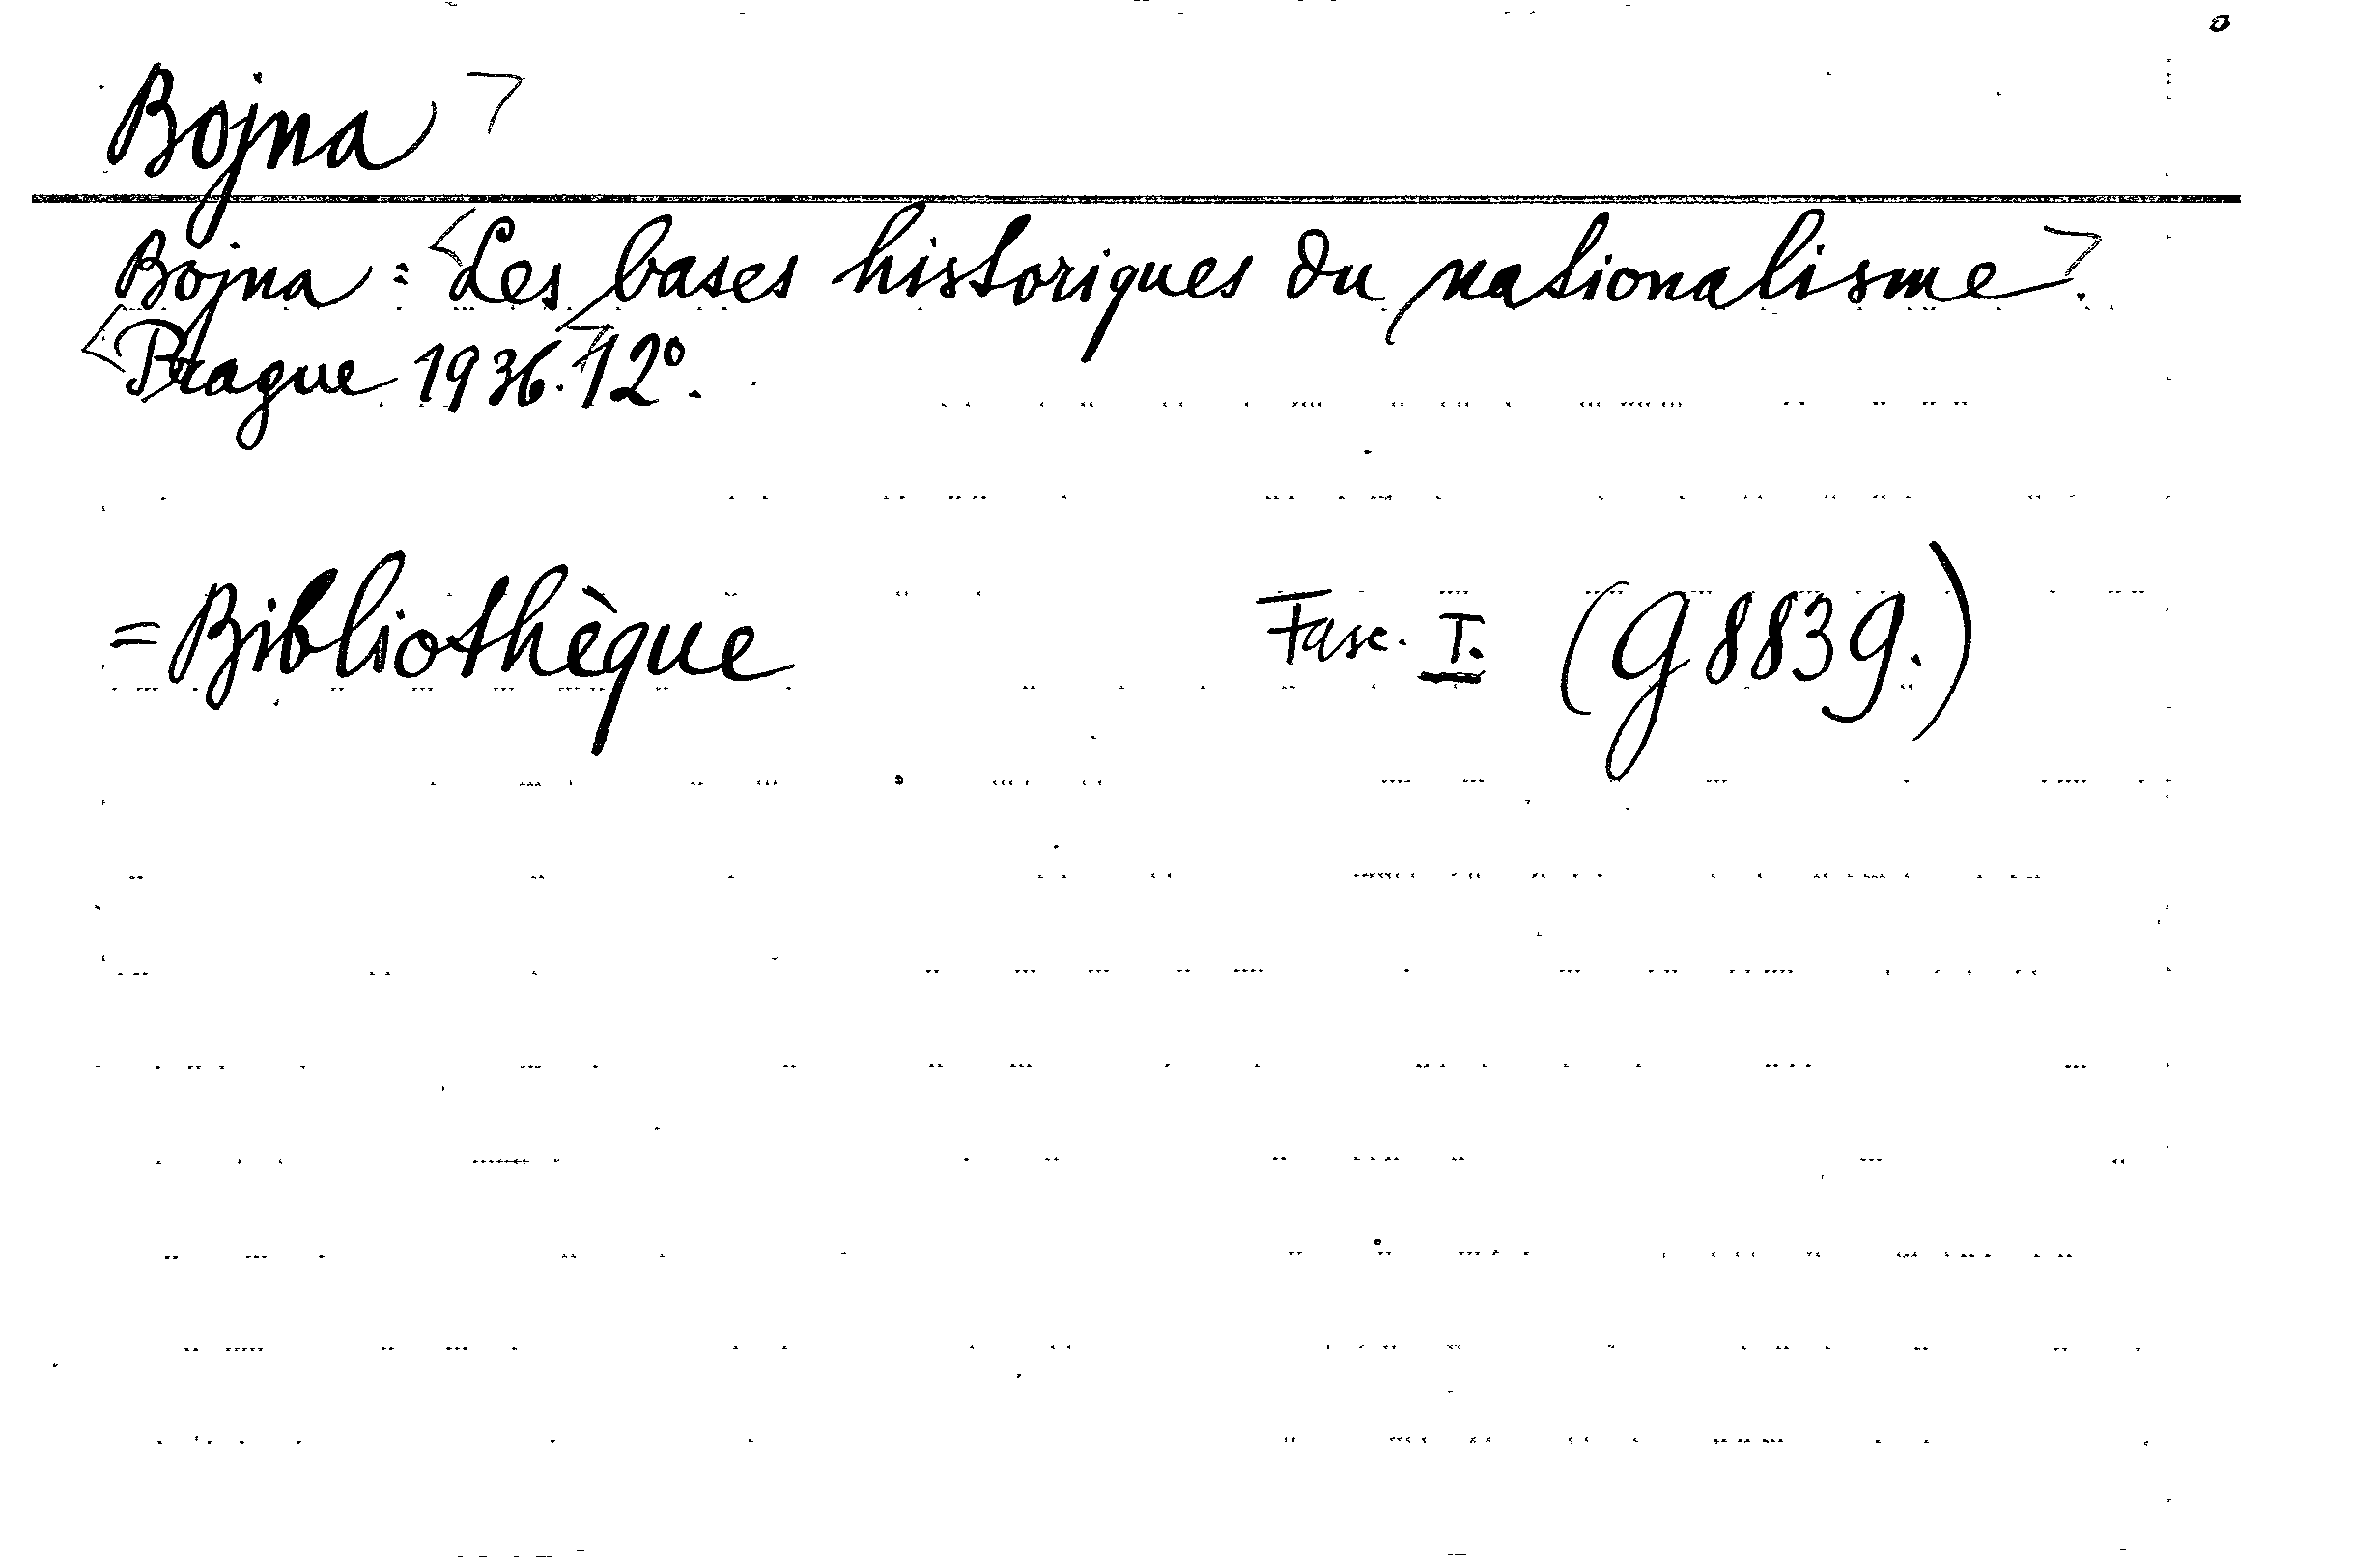 Bojna
Bojna: Les bases historiques du nationalisme.
Prague 1936. 12°.
= Bibliothèque Fasc. I. (G 8839.)